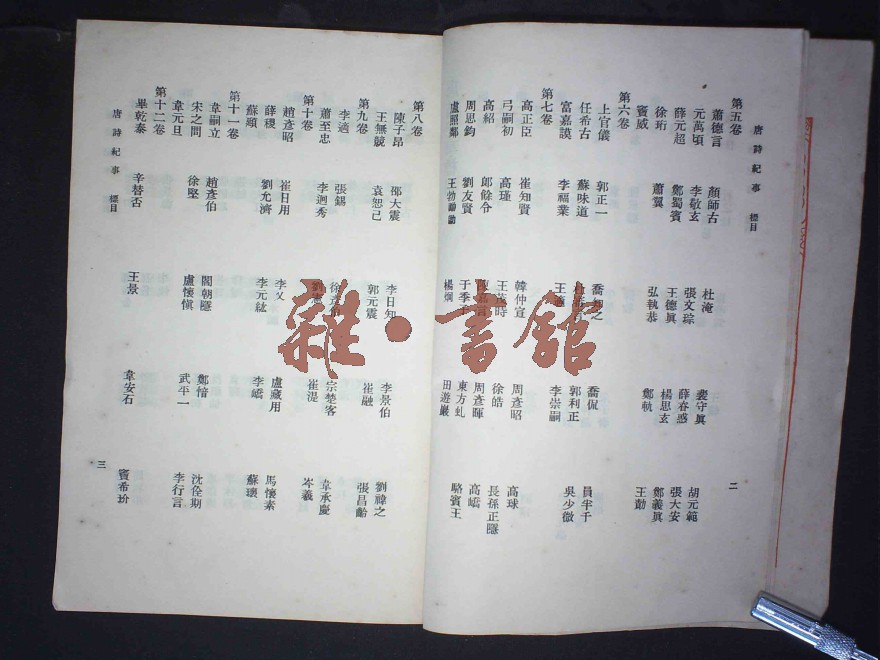 唐詩紀事 標目 二
第五卷
蕭德言 顏師古 杜淹 裴守眞 胡元範
元萬頃 李敬玄 張文琮 薛春惑 張大安
薛元超 鄭蜀賓 王德眞 楊思玄 鄭義眞
徐珩 蕭翼 弘執恭 鄭軌 王勣
竇威
第六卷
上官儀 郭正一 喬知之 喬侃 員半千
任希古 蘇味道 郭利正 吳少微
富嘉謨 李福業 王適 李崇嗣
第七卷
高正臣 崔知賢 韓仲宣 周彥昭 高球
弓嗣初 高瑾 王茂時 徐皓 長孫正隱
高紹 郎餘令 周彥暉 高嶠
周思鈞 劉友賢 于季子 東方虬 駱賓王
盧照鄰 王勃勮勔 楊炯 田遊巖
第八卷
陳子昂 邵大震 李日知 李景伯 劉禕之
王無競 袁恕己 郭元震 崔融 張昌齡
第九卷
李適 張錫 徐彥伯 宗楚客 韋承慶
蕭至忠 李迥秀 劉憲 崔湜 岑羲
第十卷
趙彥昭 崔日用 李乂 盧藏用 馬懷素
薛稷 劉允濟 李元紘 李嶠 蘇瓌
蘇頲
第十一卷
韋嗣立 趙彥伯 閻朝隱 鄭愔 沈佺期
宋之問 徐堅 盧懷愼 武平一 李行言
韋元旦
第十二卷
畢乾泰 辛替否 王景 韋安石 竇希玠
唐詩紀事 標目 三
雜·書館